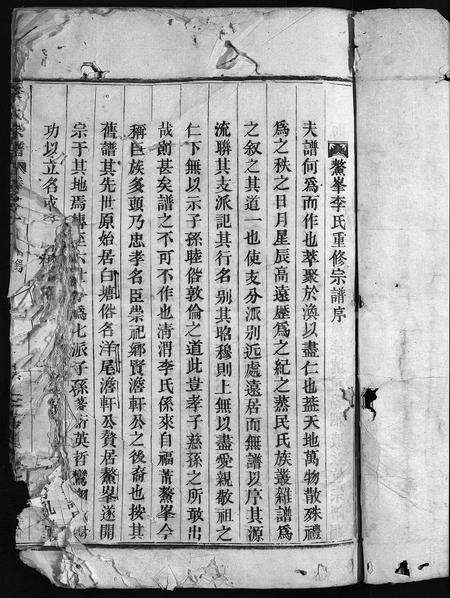 鰲峯李氏重修宗譜序
夫譜何為而作也萃聚於渙以盡仁也蓋天地萬物散殊禮
為之秩之日月星辰高遠歷為之紀之蒸民氏族叢雜譜為
之叙之其道一也使支分派别近處遠居而無譜以序其源
流聯其支派記其行名别其昭穆則上無以盡愛親敬祖之
仁下無以示子孫睦俗敦倫之道此豈孝子慈孫之所敢出
哉劊甚矣譜之不可不作也清渭李氏係來自福莆鰲峯今
稱巨族爹頭乃忠孝名臣崇祀鄉賢澹軒公之後裔也按其
舊譜其先世原始居白塘俗名洋尾澹軒公贅居鰲峯遂開
宗于其地焉傳至六世分為七派子孫蕃衍英哲
功以立名